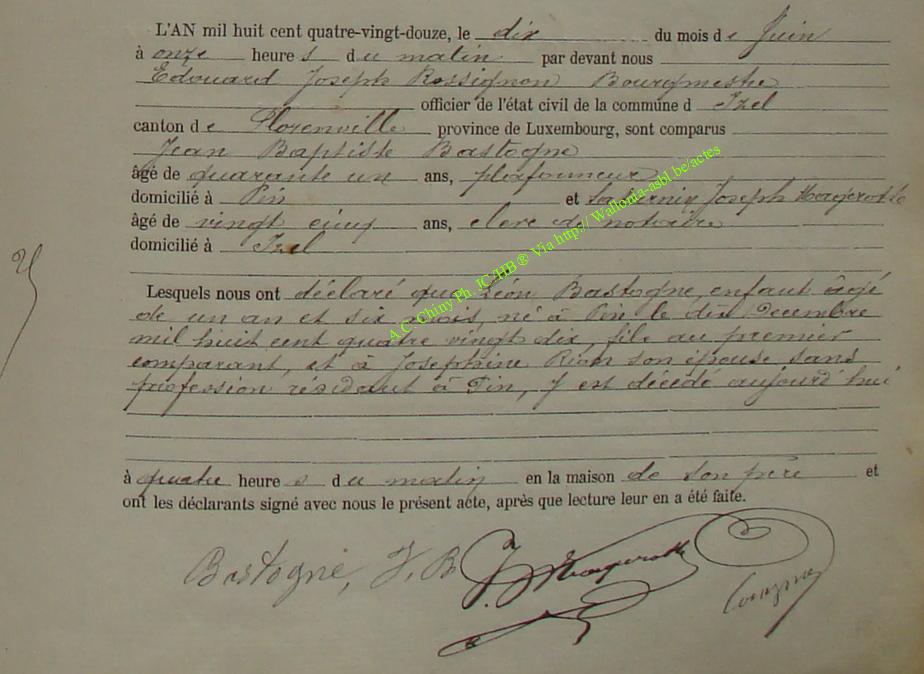 L'AN mil huit cent quatre-vingt-douze, le dix du mois de Juin
à onze heure s du matin par devant nous
Edouard Joseph Rossignon Bourgmestre
officier de l'état civil de la commune d Izel
canton de Florenville province de Luxembourg, sont comparus
Jean Baptiste Bastogne
âgé de quarante un ans, plafonneur
domicilié à Pin et Joseph
âgé de vingt cinq ans, clerc de notaire
domicilié à Izel
Lesquels nous ont déclaré que Léon Bastogne, enfant âgé
de un an et six mois, né à Pin le dix Decembre
mil huit cent quatre vingt dix, fils au premier
comparant, et à Josephine son épouse sans
profession résidant à Pin, y est décédé aujourd'hui
à quatre heure s du matin en la maison de son père et
ont les déclarants signé avec nous le présent acte, après que lecture leur en a été faite.
Bastogne, J. B
A.C. Chiny Ph. JC HB ® Via http:// Wallonia-asbl.be/actes